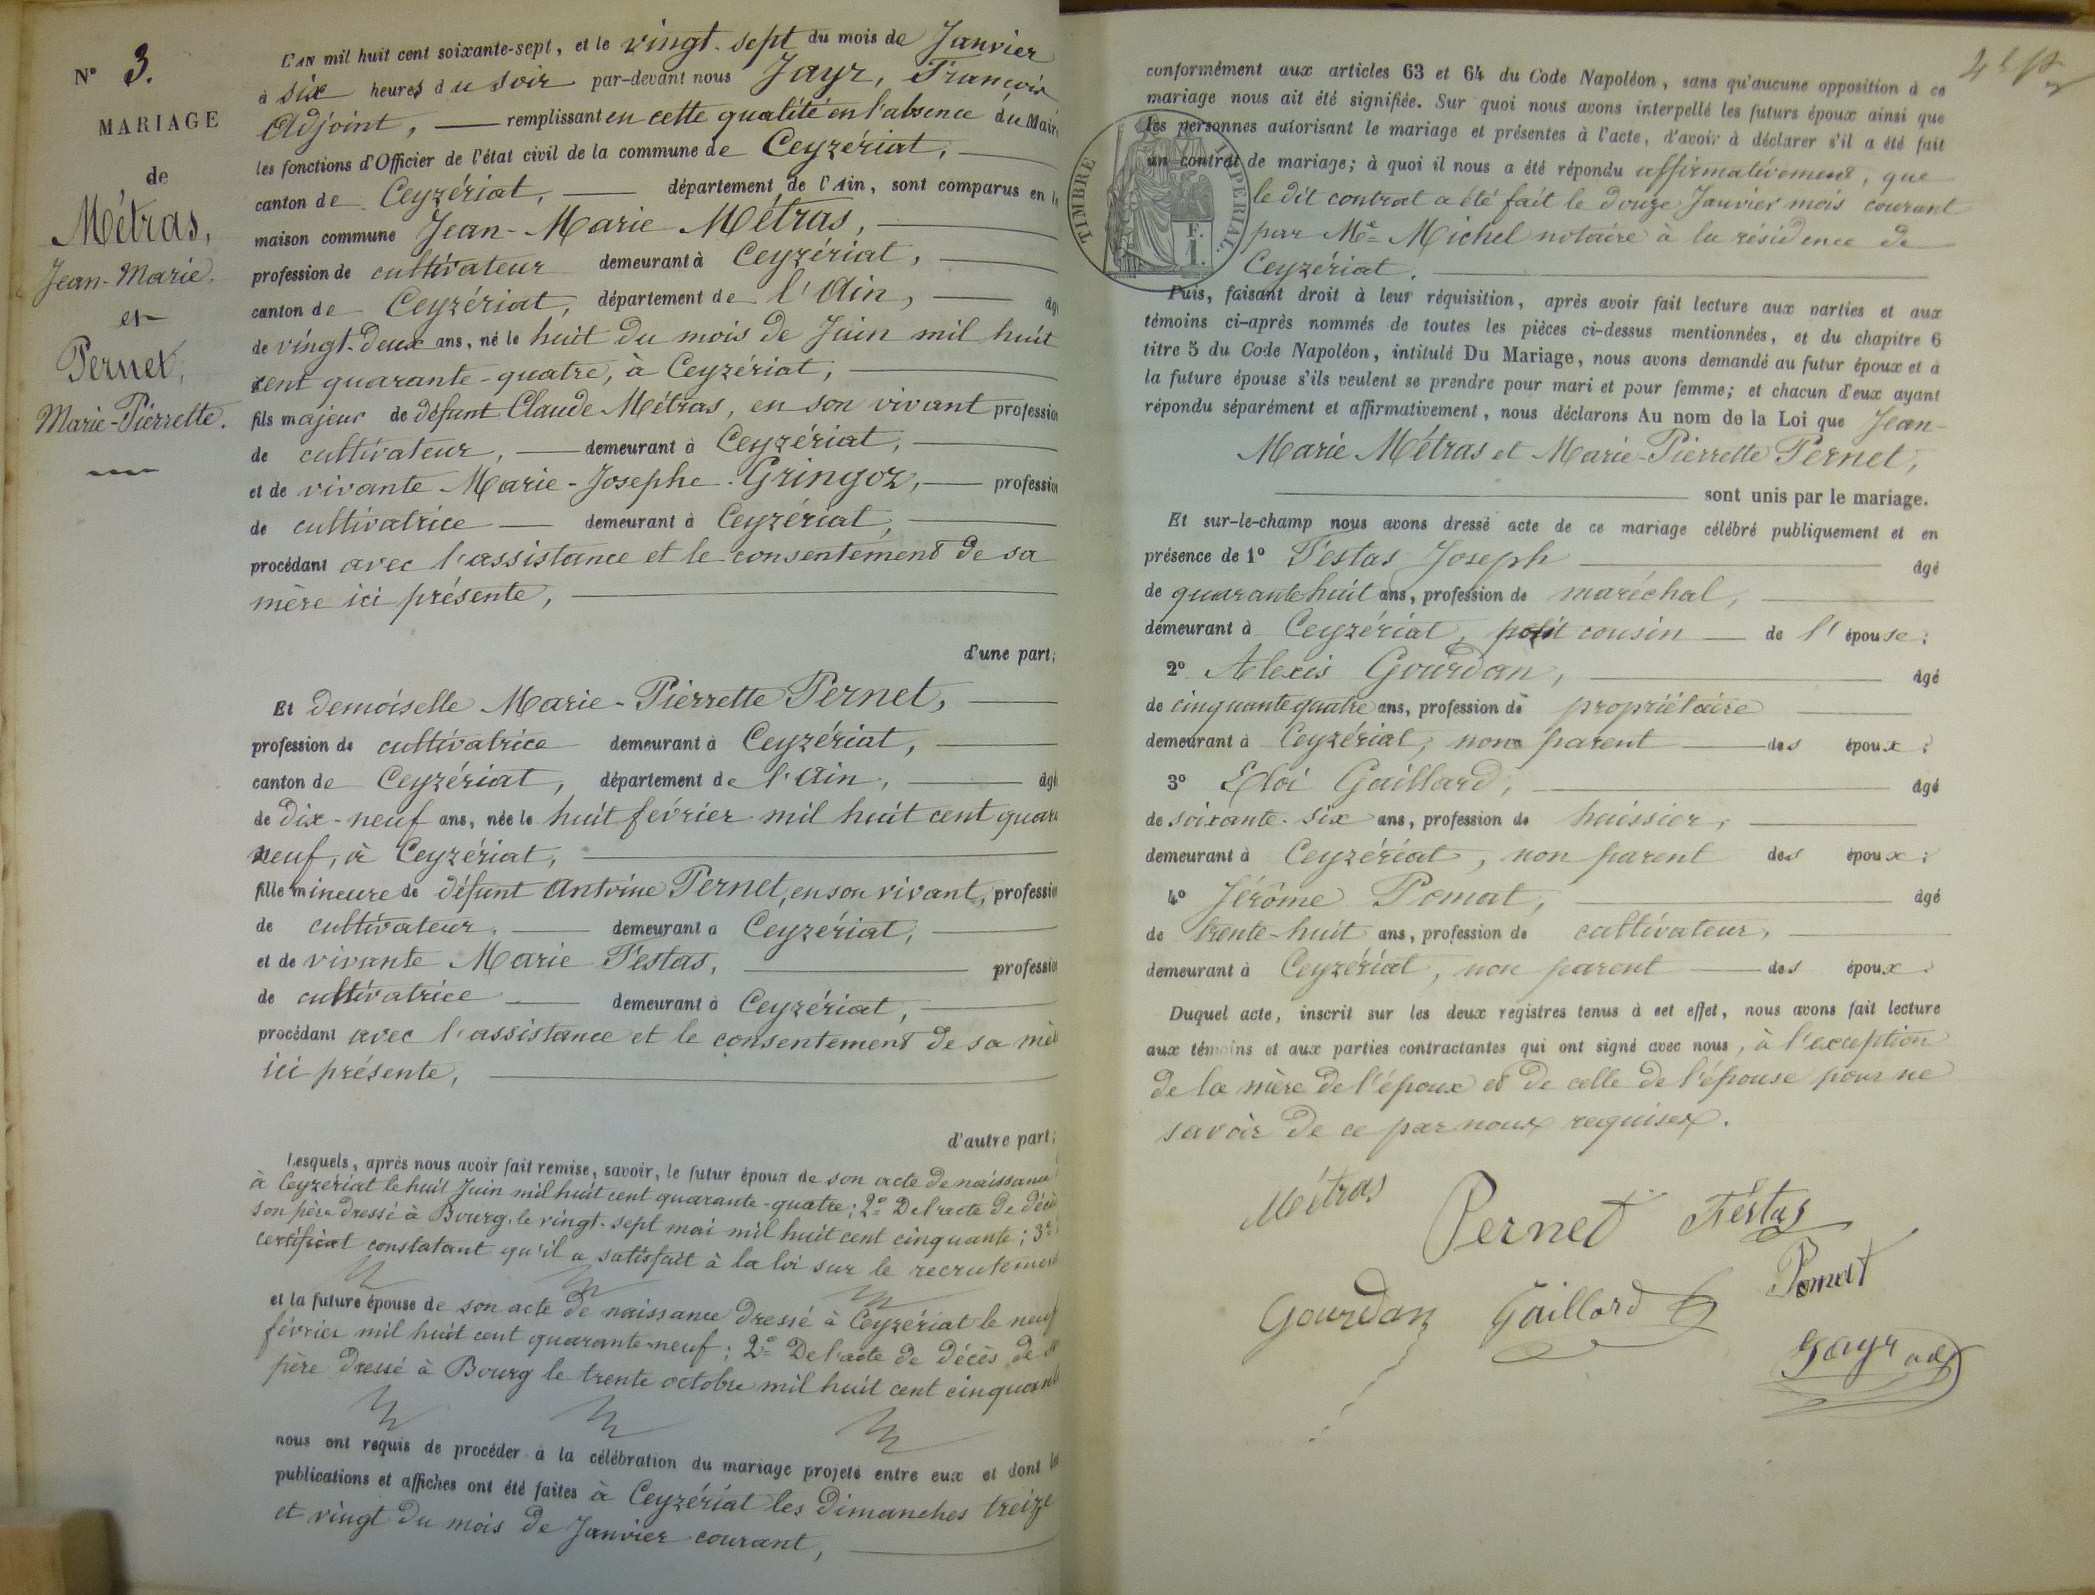 N° 3.
MARIAGE
de
Métras,
Jean-Marie.
et
Pernet,
Marie-Pierrette.
L'AN mil huit cent soixante-sept, et le vingt-sept du mois de Janvier
à six heures du soir par-devant nous Jayr, François
Adjoint, remplissant en cette qualité en l'absence du Maire
les fonctions d'Officier de l'état civil de la commune de Ceyzériat,
canton de Ceyzériat, département de l'Ain, sont comparus en la
maison commune Jean-Marie Métras,
profession de cultivateur demeurant à Ceyzériat,
canton de Ceyzériat, département de l'Ain, âgé
de vingt-deux ans, né le huit du mois de Juin mil huit
cent quarante-quatre, à Ceyzériat,
fils majeur de défunt Claude Métras, en son vivant profession
de cultivateur, demeurant à Ceyzériat,
et de vivante Marie-Josephe Gringoz, profession
de cultivatrice demeurant à Ceyzériat,
procédant avec l'assistance et le consentement de sa
mère ici présente,
d'une part;
Et demoiselle Marie-Pierrette Pernet,
profession de cultivatrice demeurant à Ceyzériat,
canton de Ceyzériat, département de l'Ain, âgé
de dix-neuf ans, née le huit février mil huit cent quar
neuf, à Ceyzériat,
fille mineure de défunt Antoine Pernet, en son vivant, profession
de cultivateur, demeurant à Ceyzériat,
et de vivante Marie Festas, profession
de cultivatrice demeurant à Ceyzériat,
procédant avec l'assistance et le consentement de sa mè
ici présente,
d'autre part;
Lesquels, après nous avoir fait remise, savoir, le futur époux de son acte de naissance
à Ceyzériat le huit Juin mil huit cent quarante-quatre; 2° De l'acte de décès
son père dressé à Bourg, le vingt-sept mai mil huit cent cinquante; 3°
certificat constatant qu'il a satisfait à la loi sur le recrutement
et la future épouse de son acte de naissance dressé à Ceyzériat le neuf
février mil huit cent quarante-neuf; 2° De l'acte de décès de s
père dressé à Bourg le trente octobre mil huit cent cinquant
nous ont requis de procéder à la célébration du mariage projeté entre eux et dont les
publications et affiches ont été faites à Ceyzériat les Dimanches treize
et vingt du mois de Janvier courant,
conformément aux articles 63 et 64 du Code Napoléon, sans qu'aucune opposition à ce
mariage nous ait été signifiée. Sur quoi nous avons interpellé les futurs époux ainsi que
les personnes autorisant le mariage et présentes à l'acte, d'avoir à déclarer s'il a été fait
un contrat de mariage; à quoi il nous a été répondu affirmativement, que
le dit contrat a été fait le douze Janvier mois courant
par Me Michel notaire à la résidence de
Ceyzériat.
TIMBRE IMPERIAL.
F.
1.
Puis, faisant droit à leur réquisition, après avoir fait lecture aux parties et aux
témoins ci-après nommés de toutes les pièces ci-dessus mentionnées, et du chapitre 6
titre 5 du Code Napoléon, intitulé Du Mariage, nous avons demandé au futur époux et à
la future épouse s'ils veulent se prendre pour mari et pour femme; et chacun d'eux ayant
répondu séparément et affirmativement, nous déclarons Au nom de la Loi que Jean-
Marie Métras et Marie-Pierrette Pernet,
sont unis par le mariage.
Et sur-le-champ nous avons dressé acte de ce mariage célébré publiquement et en
présence de 1° Festas Joseph âgé
de quarante huit ans, profession de maréchal,
demeurant à Ceyzériat, petit cousin de l'épouse;
2° Alexis Gourdan, âgé
de cinquante quatre ans, profession de propriétaire
demeurant à Ceyzériat, non parent des époux;
3° Eloi Gaillard, âgé
de soixante-six ans, profession de huissier,
demeurant à Ceyzériat, non parent des époux;
4° Jérôme Pomat, âgé
de trente-huit ans, profession de cultivateur,
demeurant à Ceyzériat, non parent des époux.
Duquel acte, inscrit sur les deux registres tenus à cet effet, nous avons fait lecture
aux témoins et aux parties contractantes qui ont signé avec nous, à l'exception
de la mère de l'époux et de celle de l'épouse pour ne
savoir de ce par nous requises.
Métras
Pernet Festas
Gourdan Gaillard Pomat
Jayr adj